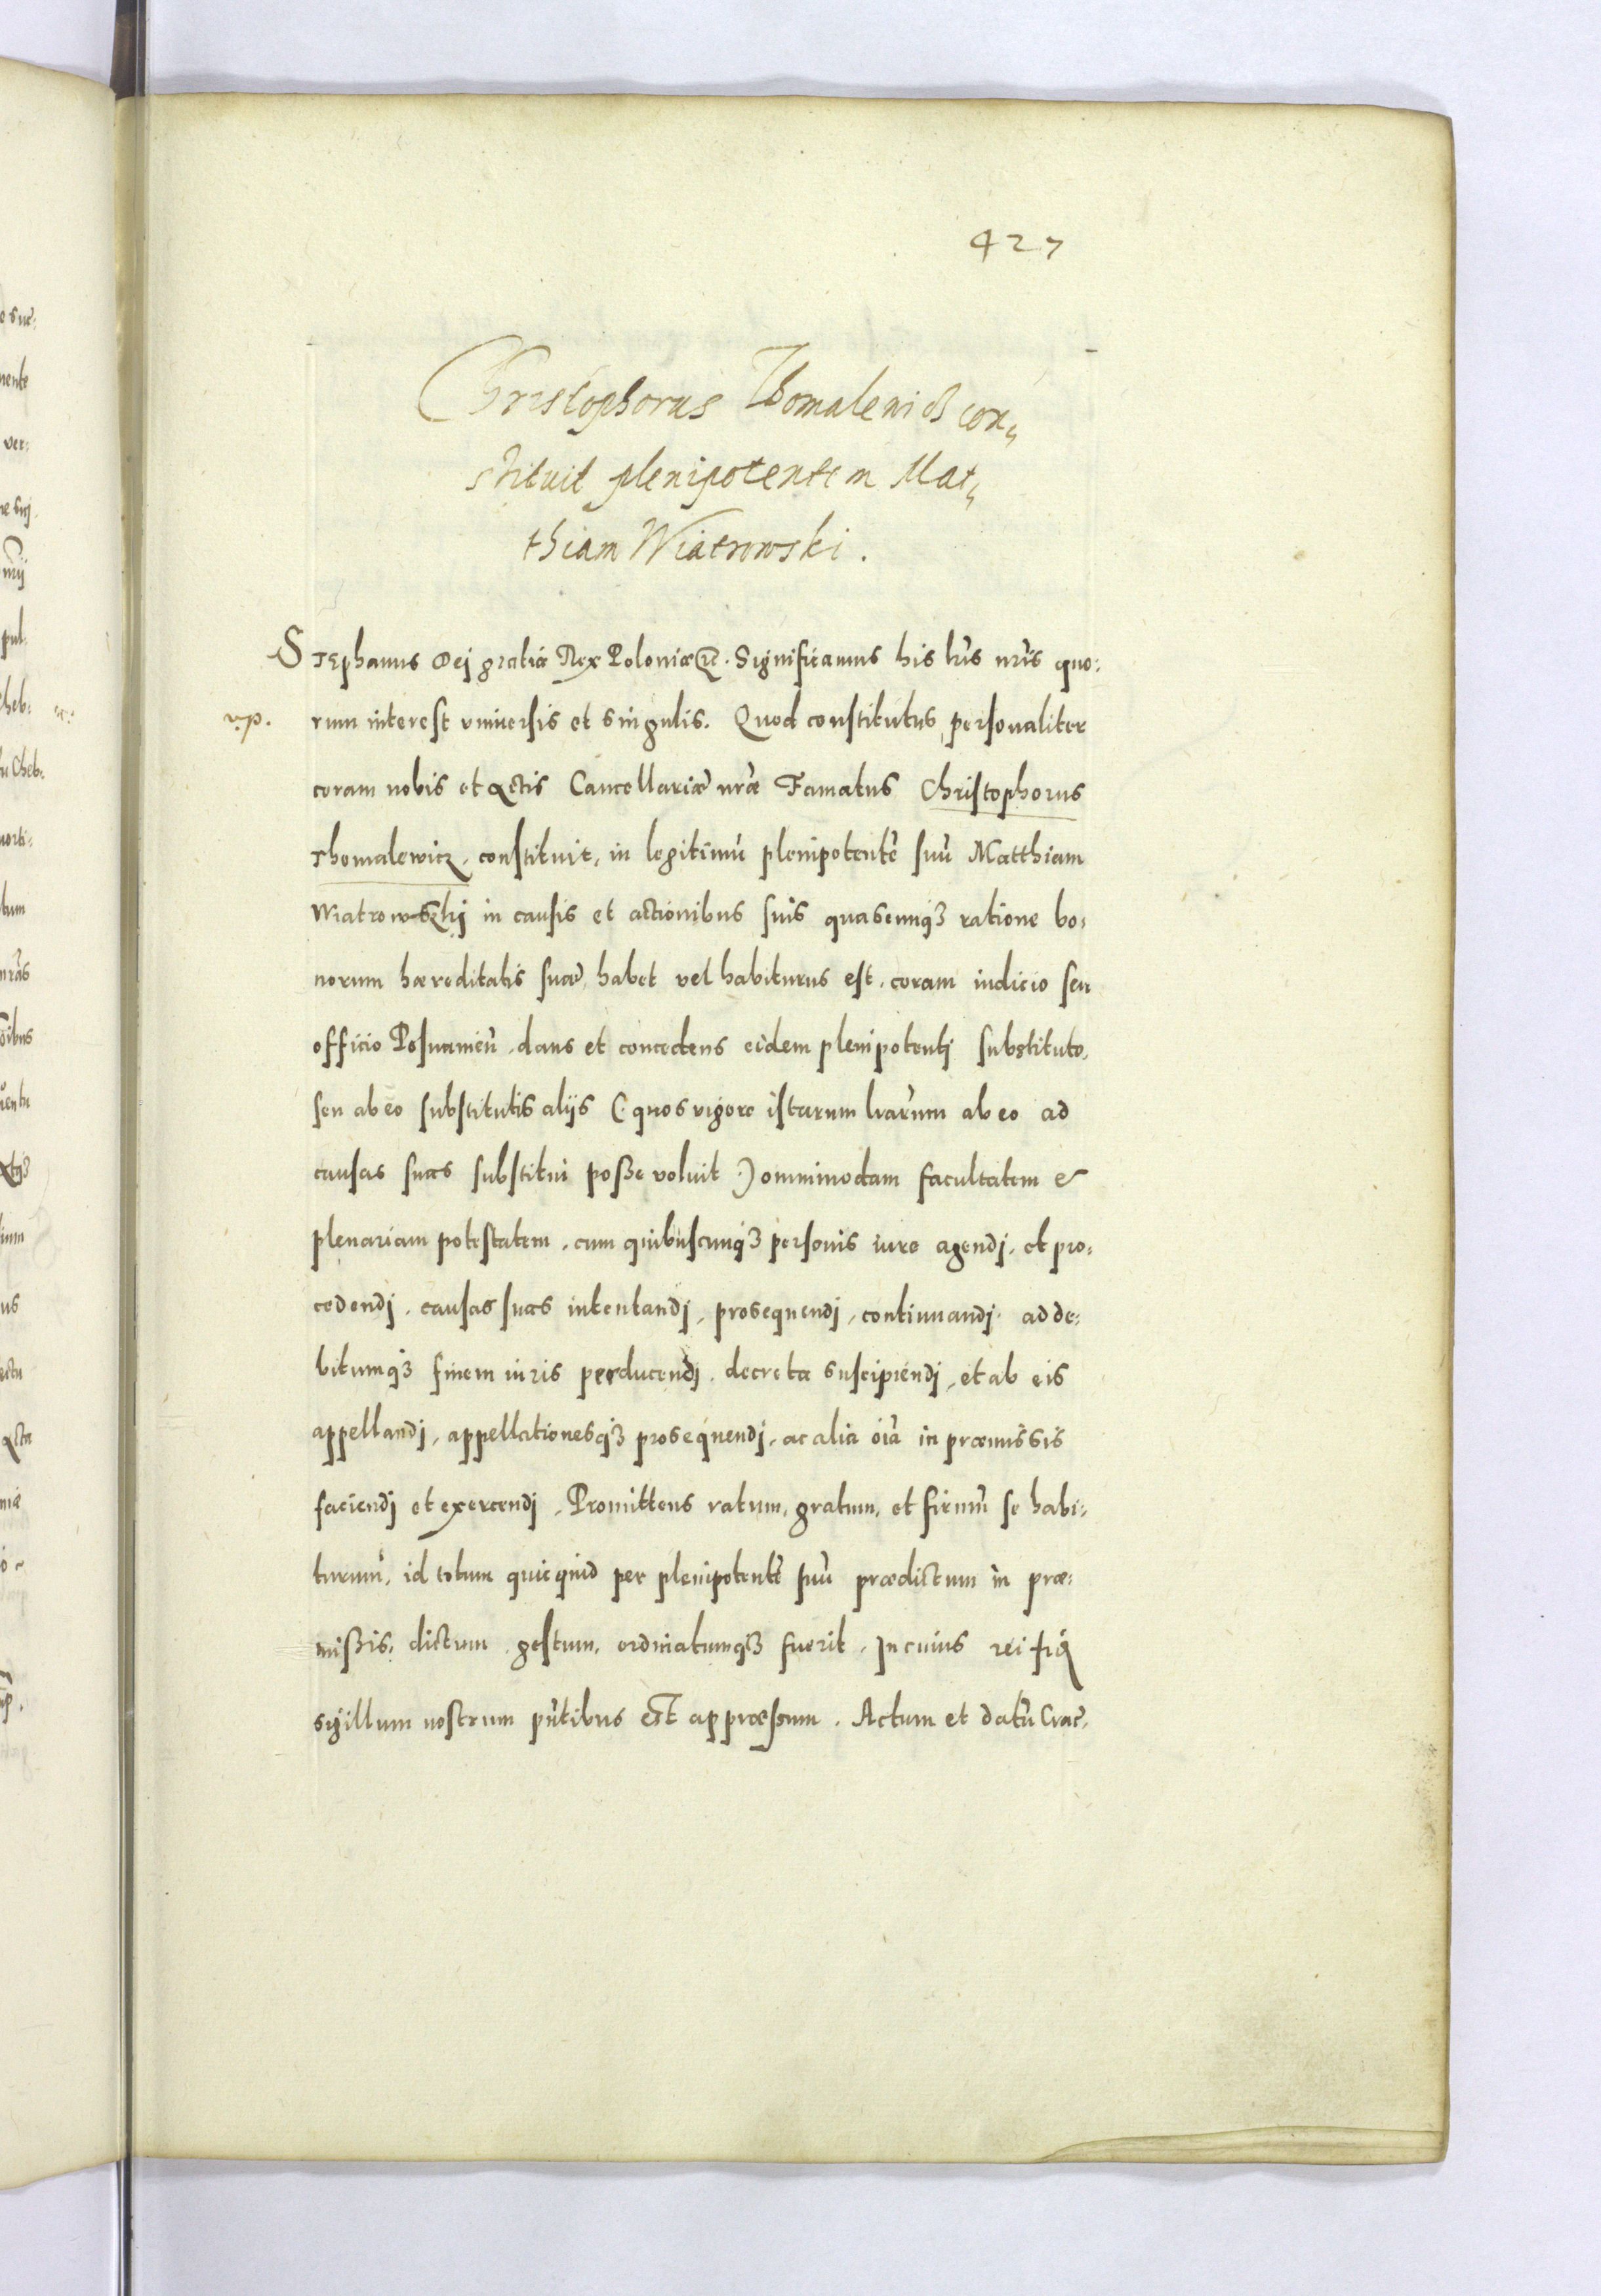 427
Christophorus Thomalewicz con„
stituit plenipotentem Mat„
thiam Wiatrowski.
Stephanus Dej gratia Rex Poloniæ &c. Significamus his lrĩs nrĩs quo:
v.p. rum interest vniuersis et singulis. Quod constitutus personaliter
coram nobis et Actis Cancellariæ nrãe Famatus Christophorus
Thomalewicz, constituit, in legitimũ plenipotentẽ suũ Matthiam
Wiatrowskj in causis et actionibus suis quascunq3 ratione bo,
norum hæreditatis suæ, habet vel habiturus est, coram iudicio seu
officio Posnanieñ, dans et concedens eidem plenipotentj substituto,
seu ab eo substitutis alijs (: quos vigore istarum lrarum ab eo ad
causas suas substitui posse voluit :) omnimodam facultatem &
plenariam potestatem, cum quibuscunq3 personis iure agendj, et pro:
cedendj, causas suas intentandj, prosequendj, continuandj, ad de:
bitumq3 finem iuris perducendj, decreta suscipiendj, et ab eis
appellandj, appellationesq3 prosequendj, ac alia oĩa in præmissis
faciendj et exercendj, Promittens ratum, gratum, et firmũ se habi:
turum, id totum quicquid per plenipotentẽ suũ prædictum in præ:
missis, dictum, gestum, ordinatumq3 fuerit. In cuius rei fid
sigillum nostrum pñtibus est appræssum. Actum et datũ Crac,